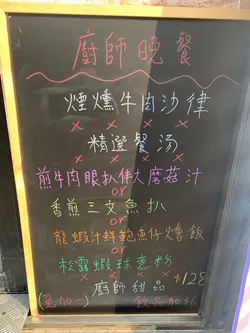 廚師晚餐
煙燻牛肉沙律
x x x x
精選餐汤
x x x x
煎牛肉眼扒伴大磨菇汁
or
香煎三文魚扒
or
龍蝦汁鮮鮑魚仔燴飯
or
松露蝦球意粉
x x x x
廚師甜品 $128
(另加一) 飲品加$5